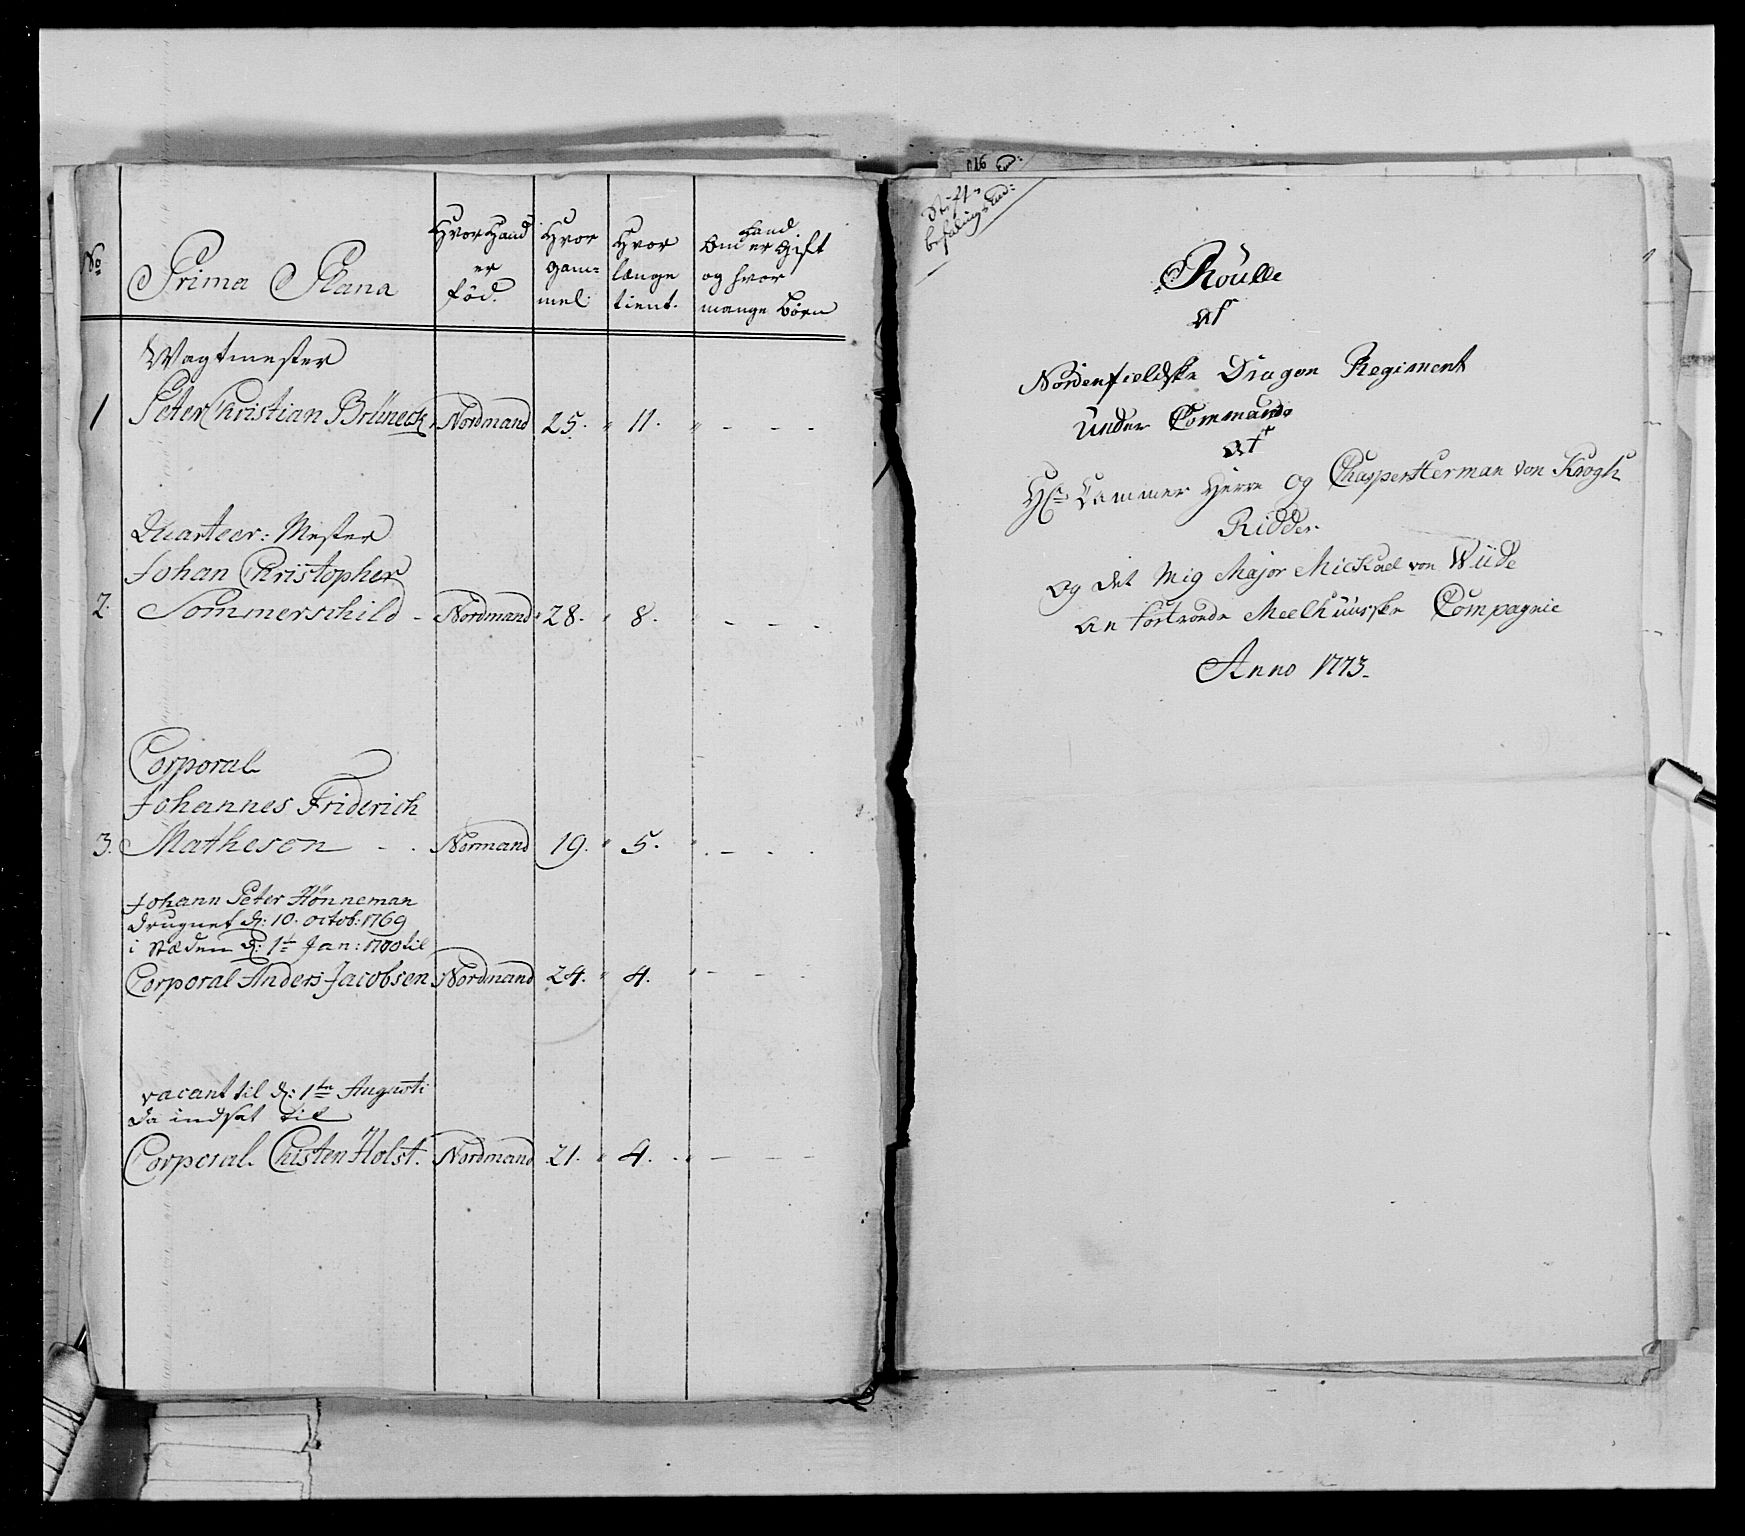 No
Prima Plana
Hvor Hand
er
Fød.
Hvor
gam=
mel
Hvor
længe
tient.
Hand
Om er Gift
og hvor
mange Børn
Wagtmester
1 Peter Christian Brüneck Nordmand 25. " 11. " - - -
Quarteer: Mester
Johan Christopher
2. Sommerschild - Nordmand 28. " 8. " - - -
Corporal
Johannes Friderich
3. Matheson - . Normand 19. " 5. " . - . .
Johann Peter Hönneman
d: 10. octob: 1769
i Stæden d: 1t Jan: til
Corporal Anders Jacobsen Nordmand 24. " 4. " - - -
vacant til d: 1te Augusti
da indsat til
Corporal Christen Holst. Nordmand 21. " 4. . " - - -
Stift=
befalingsmd:
Roulle
af
Nordenfieldske Dragon Regiment
Under Commando
af
Hr Cammer Herre og Chasper Herman von Krogh
Ridder
og det Mig Major Mickael von Wiide
an fortroede Meelhuusske Compagnie
Anno 1773.